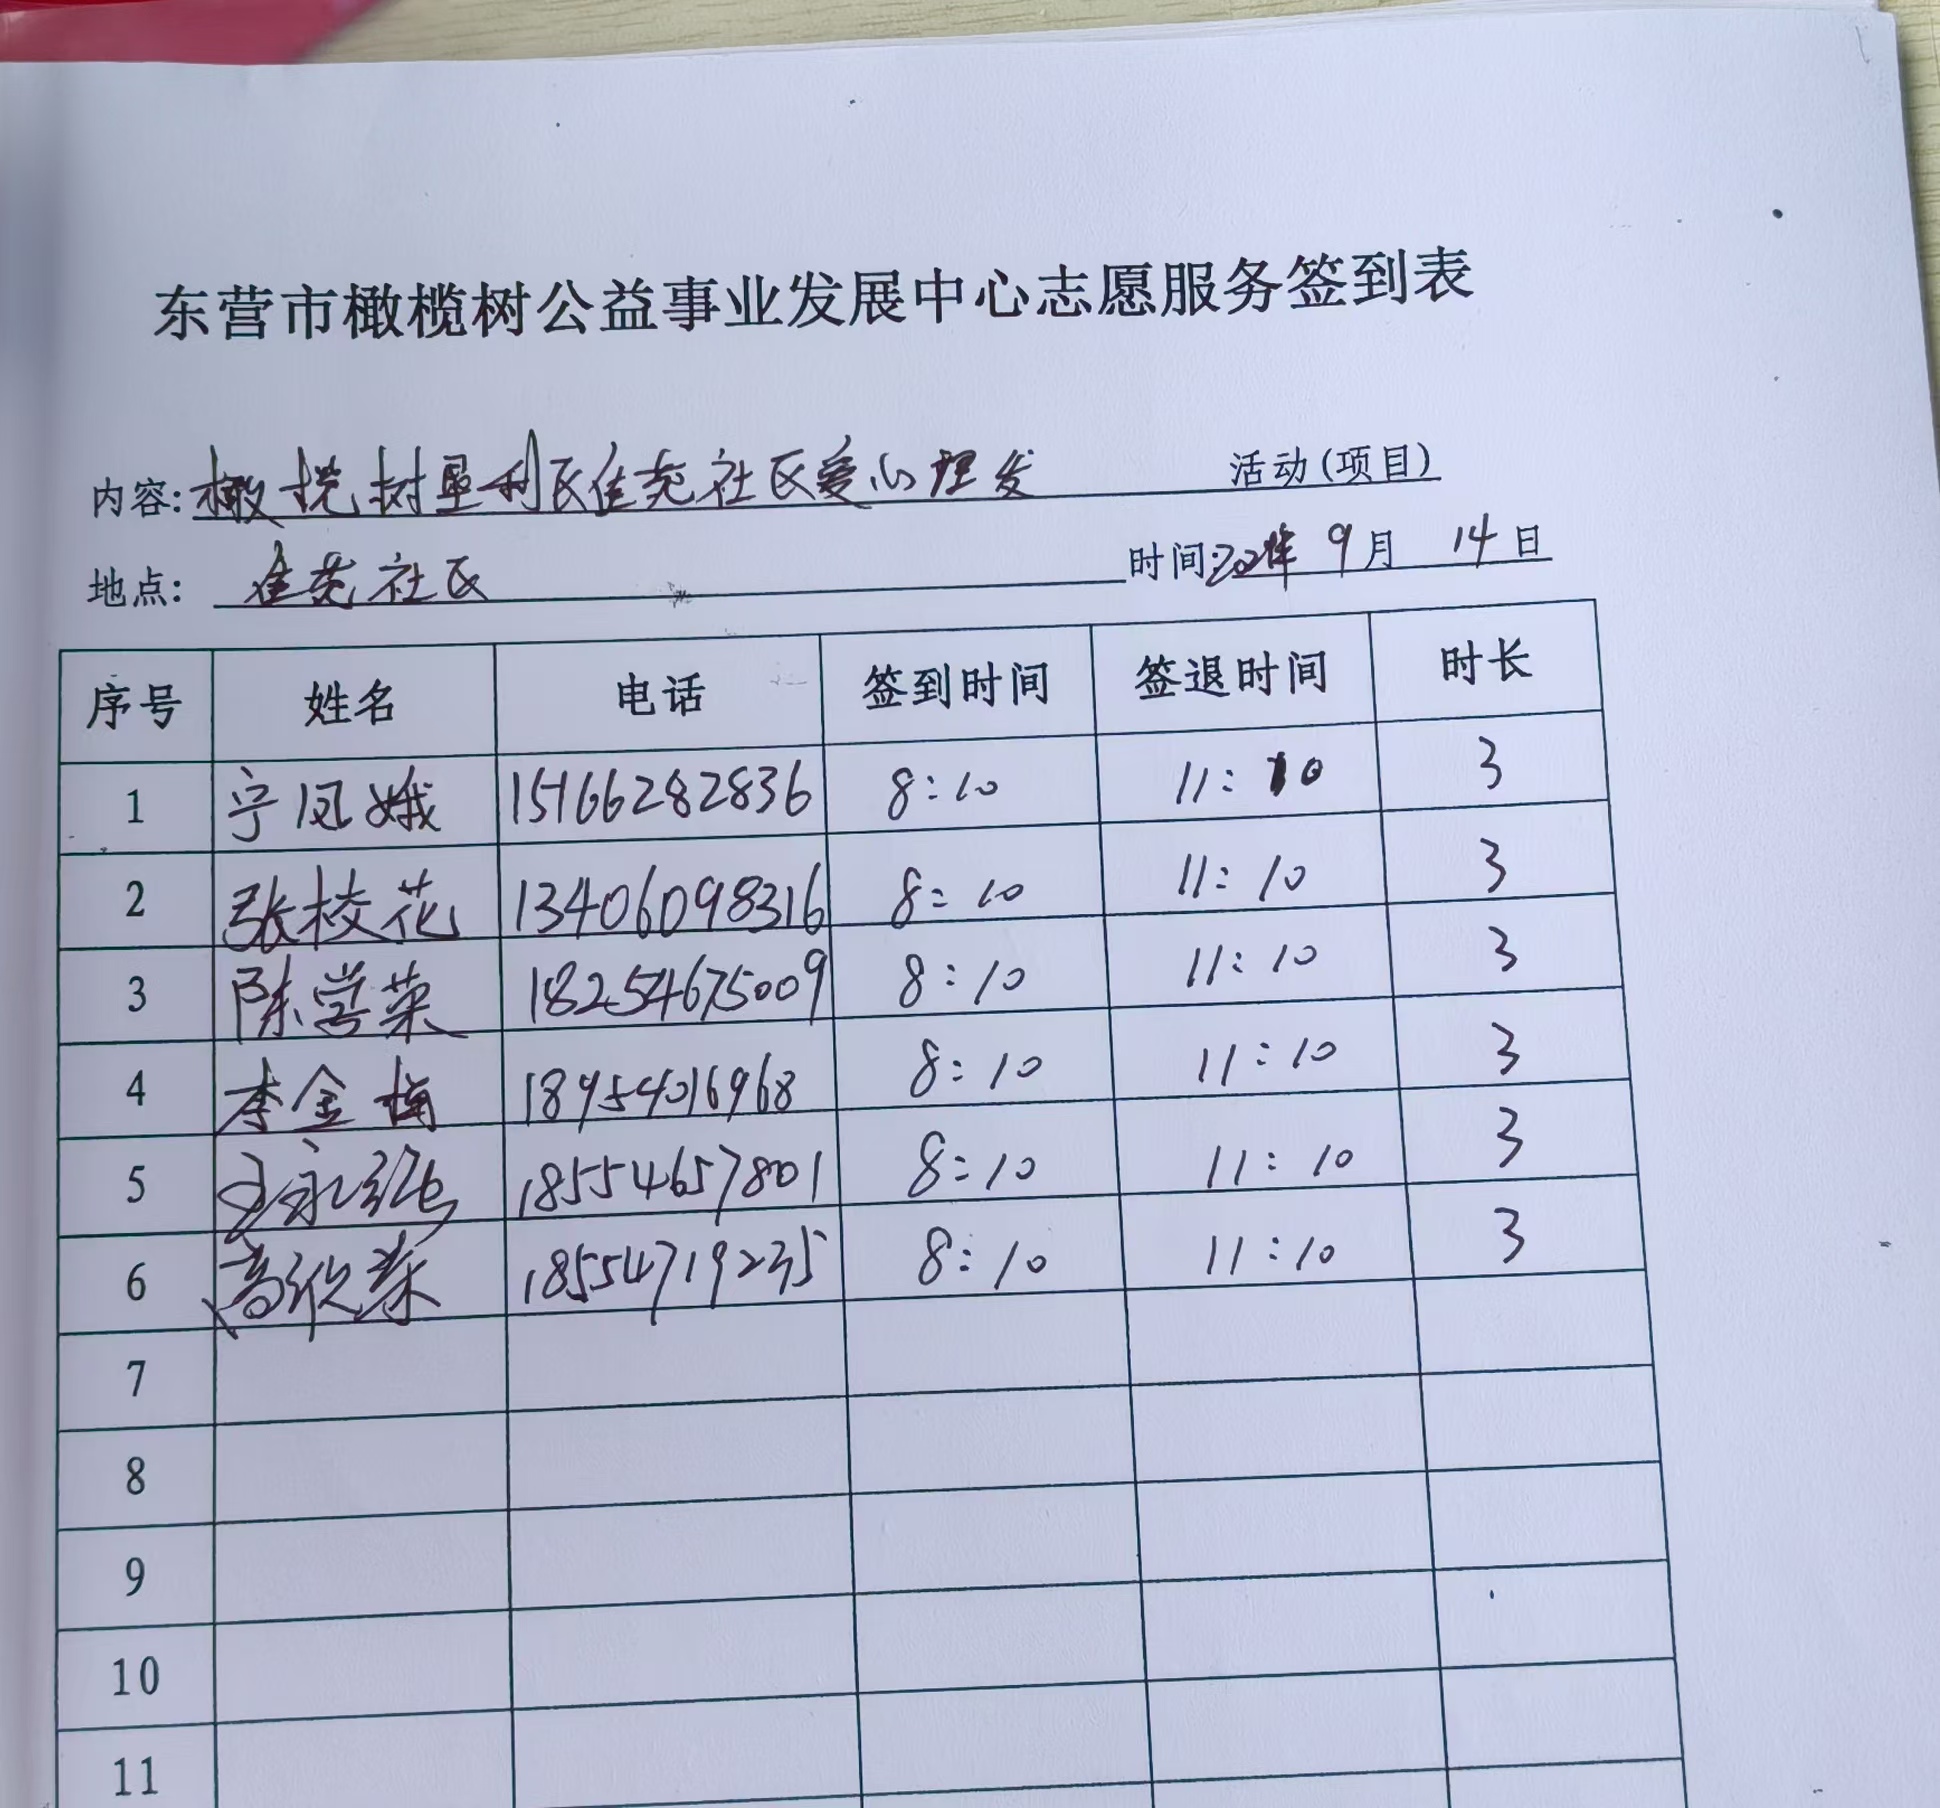 东营市橄榄树公益事业发展中心志愿服务签到表
内容:橄榄树垦利区佳苑社区爱心理发 活动(项目)
地点: 佳苑社区 时间: 年 9月 14日
序号 姓名 电话 签到时间 签退时间 时长
1 宁凤娥 15166282836 8:10 11:10 3
2 张校花 13406098316 8:10 11:10 3
3 陈営荣 18254675009 8:10 11:10 3
4 李金梅 18954016968 8:10 11:10 3
5 18554657801 8:10 11:10 3
6 18554719235 8:10 11:10 3
7
8
9
10
11